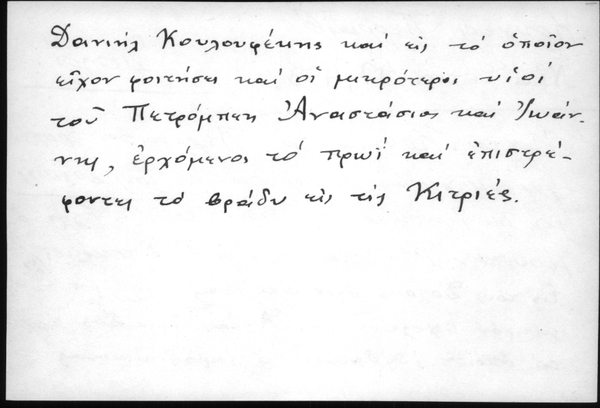 Δανιήλ Κουλουφέκης καί εἰς τό ὁποῖον
εἶχον φοιτήσει καί οἱ μικρότεροι υἱοί
τοῦ Πετρόμπεη Ἀναστάσιος καί Ἰωάν-
νης, ἐρχόμενοι τό πρωΐ καί ἐπιστρέ-
φοντες τό βράδυ εἰς τίς Κιτριές.